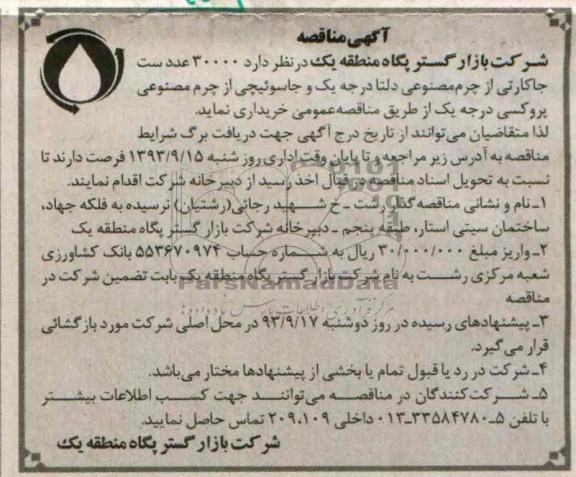 آگهی مناقصه
شرکت بازار گستر پگاه منطقه یک در نظر دارد ۳۰۰۰۰ عدد ست
جاکارتی از چرم مصنوعی دلتا درجه یک و جاسوئیچی از چرم مصنوعی
پروکسی درجه یک از طریق مناقصه عمومی خریداری نماید.
لذا متقاضیان می‌توانند از تاریخ درج آگهی جهت دریافت برگ شرایط
مناقصه به آدرس زیر مراجعه و تا پایان وقت اداری روز شنبه ۱۳۹۳/۹/۱۵ فرصت دارند تا
نسبت به تحویل اسناد مناقصه در قبال اخذ رسید از دبیرخانه شرکت اقدام نمایند.
۱ـ نام و نشانی مناقصه گذار: رشت ـ خ شهید رجائی (رشتیان) نرسیده به فلکه جهاد،
ساختمان سیتی استار، طبقه پنجم ـ دبیرخانه شرکت بازار گستر پگاه منطقه یک
۲ـ واریز مبلغ ۳۰/۰۰۰/۰۰۰ ریال به شماره حساب ۵۵۳۶۷۰۹۷۴ بانک کشاورزی
شعبه مرکزی رشت به نام شرکت بازار گستر پگاه منطقه یک بابت تضمین شرکت در
مناقصه
ParsNamadData
مرکز فرآوری اطلاعات پارس نماد داده‌ها
۳ـ پیشنهادهای رسیده در روز دوشنبه ۹۳/۹/۱۷ در محل اصلی شرکت مورد بازگشائی
قرار می‌گیرد.
۴ـ شرکت در رد یا قبول تمام یا بخشی از پیشنهادها مختار می‌باشد.
۵ـ شرکت‌کنندگان در مناقصه می‌توانند جهت کسب اطلاعات بیشتر
با تلفن ۵ـ۰۱۳-۳۳۵۸۴۷۸۰ داخلی ۲۰۹،۱۰۹ تماس حاصل نمایید.
شرکت بازار گستر پگاه منطقه یک